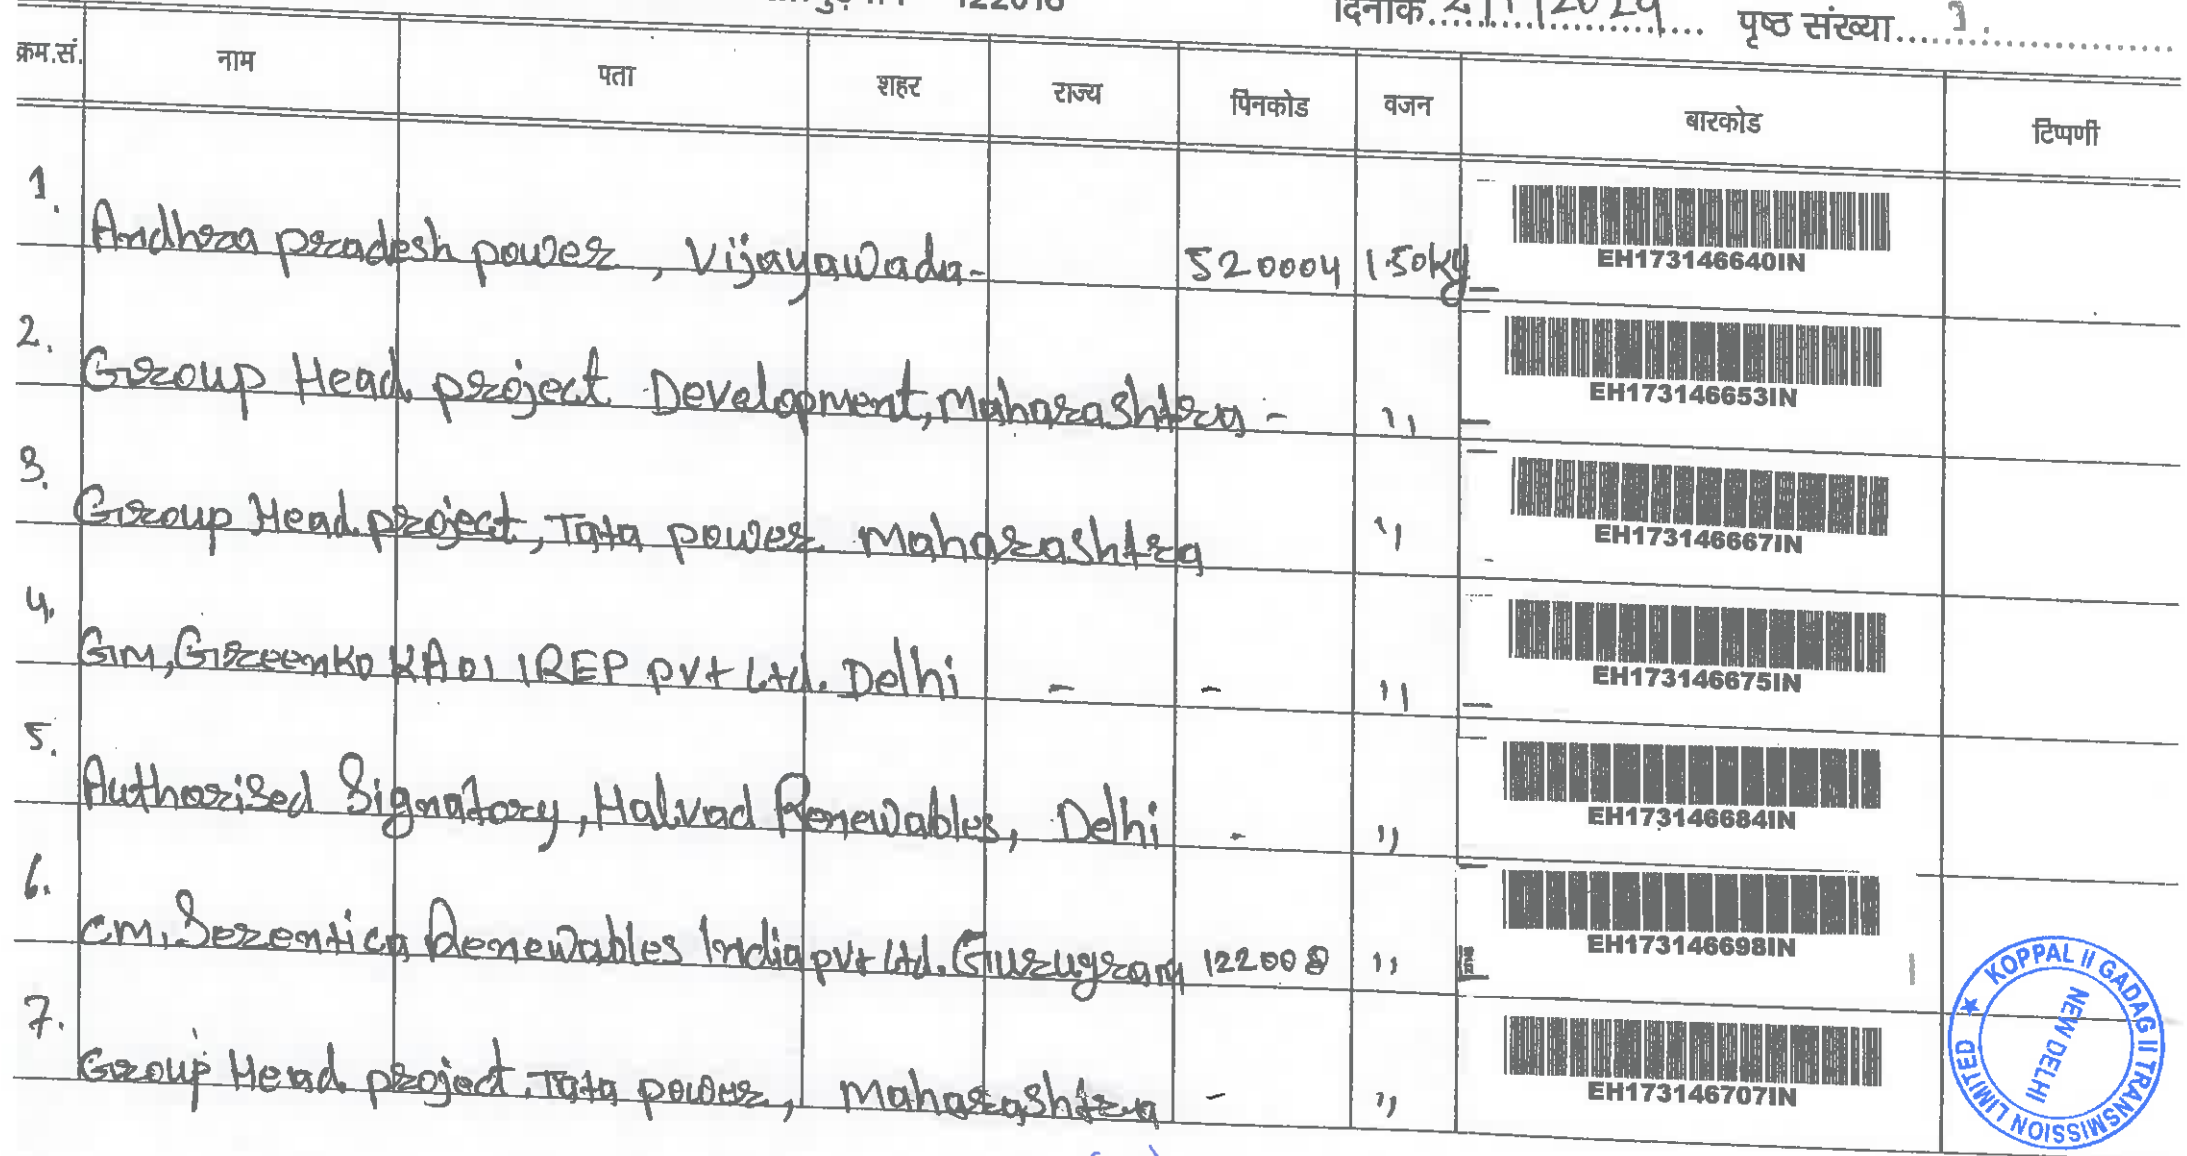 122016 दिनांक 2/1/2024 पृष्ठ संख्या 1.
क्रम.सं. नाम पता शहर राज्य पिनकोड वजन बारकोड टिप्पणी
1. Andhra pradesh power, Vijayawada- 520004 1.50kg EH173146640IN
2. Group Head project Development, Maharashtra - ,, EH173146653IN
3. Group Head project, Tata power Maharashtra ,, EH173146667IN
4. GM, Greenko KA01 IREP pvt Ltd. Delhi - - ,, EH173146675IN
5. Authorised Signatory, Halvad Renewables, Delhi - ,, EH173146684IN
6. CM, Serentica Renewables India pvt Ltd. Gurugram 122008 ,, EH173146698IN
7. Group Head project, Tata power, Maharashtra - ,, EH173146707IN
KOPPAL II GADAG II TRANSMISSION LIMITED ★
NEW DELHI